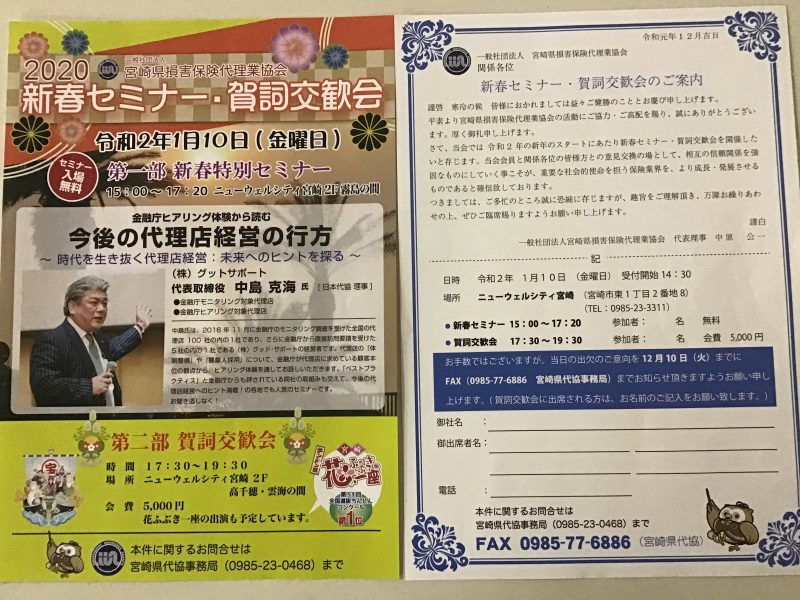 2020
一般社団法人
宮崎県損害保険代理業協会
新春セミナー・賀詞交歓会
令和2年1月10日(金曜日)
セミナー
入場
無料
第一部 新春特別セミナー
15:00〜17:20 ニューウェルシティ宮崎 2F 霧島の間
金融庁ヒアリング体験から読む
今後の代理店経営の行方
〜 時代を生き抜く代理店経営:未来へのヒントを探る 〜
(株)グットサポート
代表取締役 中島 克海 氏 [日本代協 理事]
●金融庁モニタリング対象代理店
●金融庁ヒアリング対象代理店
中島氏は、2016年11月に金融庁のモニタリング調査を受けた全国の代
理店100社の内の1社であり、さらに金融庁から直接訪問要請を受けた
5社の内の1社である(株)グッド・サポートの経営者です。代理店の「体
制整備」や「募集人採用」について、金融庁が代理店に求めている顧客本
位の観点から、ヒアリング体験を通してお話しいただきます。「ベストプ
ラクティス」と金融庁からも評されている同社の取組みも交えて、今後の代
理店経営へのヒント満載!の各地でも人気のセミナーです。
お聞き逃しなく!
第二部 賀詞交歓会
時 間 17:30〜19:30
場 所 ニューウェルシティ宮崎 2F
高千穂・雲海の間
会 費 5,000円
花ふぶき一座の出演も予定しています。
宮崎
花ふぶき一座
全国選抜ちんどん
コンクール
第1位
本件に関するお問合せは
宮崎県代協事務局(0985-23-0468)まで
令和元年12月吉日
一般社団法人 宮崎県損害保険代理業協会
関係各位
新春セミナー・賀詞交歓会のご案内
謹啓 寒冷の候 皆様におかれましては益々ご健勝のこととお慶び申し上げます。
平素より宮崎県損害保険代理業協会の活動にご協力・ご高配を賜り、誠にありがとうござい
ます。厚く御礼申し上げます。
さて、当会では 令和2年の新年のスタートにあたり新春セミナー・賀詞交歓会を開催した
いと存じます。当会会員と関係各位の皆様方との意見交換の場として、相互の信頼関係を強
固なものにしていく事こそが、重要な社会的使命を担う保険業界を、より成長・発展させる
ものであると確信致しております。
つきましては、ご多忙のところ誠に恐縮に存じますが、趣旨をご理解頂き、万障お繰りあわ
せの上、ぜひご臨席賜りますようお願い申し上げます。
謹白
一般社団法人宮崎県損害保険代理業協会 代表理事 中原 公一
記
日時 令和2年 1月10日 (金曜日) 受付開始14:30
場所 ニューウェルシティ宮崎 (宮崎市東1丁目2番地8)
(TEL:0985-23-3311)
● 新春セミナー 15:00〜17:20 参加者: 名 無料
● 賀詞交歓会 17:30〜19:30 参加者: 名 会費 5,000円
お手数ではございますが、当日の出欠のご意向を12月10日(火)までに
FAX(0985-77-6886 宮崎県代協事務局)までお知らせ頂きますようお願い申し
上げます。(賀詞交歓会に出席される方は、お名前のご記入をお願い致します。)
御社名:
御出席者名:
電話 :
本件に関するお問合せは
宮崎県代協事務局(0985-23-0468)まで
FAX 0985-77-6886 (宮崎県代協)